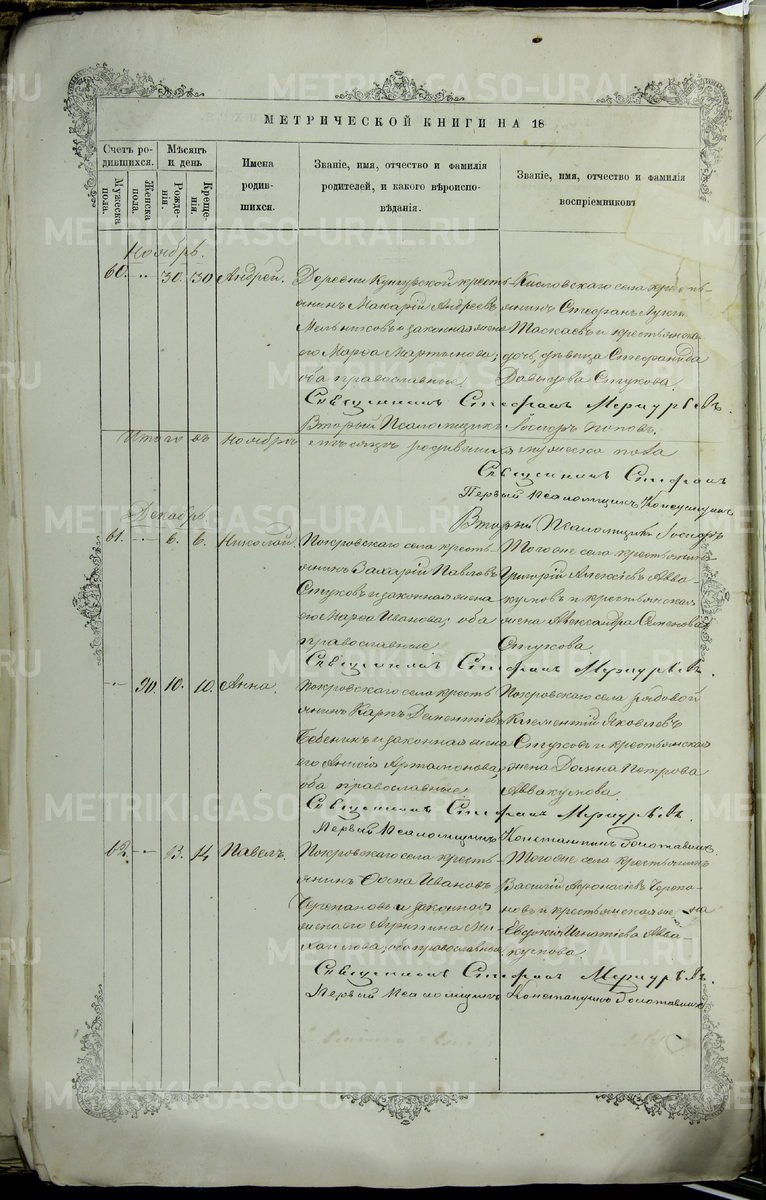 МЕТРИЧЕСКОЙ КНИГИ НА 18
Счетъ ро-
дившихся.
Мужеска
пола.
Женска
пола.
Мѣсяцъ
и день
Рожде-
нія.
Креще-
нія.
Имена
родив-
шихся.
Званіе, имя, отчество и фамилія
родителей, и какого вѣроиспо-
вѣданія.
Званіе, имя, отчество и фамилія
воспріемниковъ
Ноябрь.
60. 30. 30 Андрей.
Деревни Кунгурской кресть-
янинъ Макарій Андреевъ
Мельниковъ и законная жена
его Марѳа Мартынова; 
оба православные.
село кресть-
янинъ Стефанъ
Таскаевъ и крестьянска
дочь, дѣвица Стефанида
Давыдова Стукова.
Священникъ Стефанъ Меркурьевъ.
Вторый Псаломщикъ Іосифъ Поповъ.
Итого въ Ноябрѣ мѣсяцѣ родившихся мужеска пола
Священникъ Стефанъ
Первый Псаломщикъ Константинъ
Вторый Псаломщикъ Іосифъ
Декабрь
61. 6. 6. Николай.
Покровскаго села кресть-
янинъ Захарій Павловъ
Стуковъ и законная жена
его Марѳа Иванова; оба
православные.
Того же села крестьянинъ
Григорій Алексѣевъ Авва-
кумовъ и крестьянская
жена Александра Семенова
Стукова.
Священникъ Стефанъ Меркурьевъ.
90. 10. 10. Анна.
Покровскаго села кресть-
янинъ Карпъ Дементіевъ
и законная жена
его Анисія Артамонова;
оба православные.
Покровскаго села рядовой
Климентій Яковлевъ
Стуковъ и крестьянская
жена Домна Петрова
Аввакумова.
Священникъ Стефанъ Меркурьевъ.
Первый Псаломщикъ Константинъ
62. 13. 14. Павелъ.
Покровскаго села кресть-
янинъ Іосифъ Ивановъ
Черепановъ и законная
жена его Агриппина Ми-
хайлова; оба православные.
Того же села крестьянинъ
Василій Аѳонасіевъ Черепа-
новъ и крестьянская жена
Евдокія Игнатіева Авва-
кумова.
Священникъ Стефанъ Меркурьевъ.
Первый Псаломщикъ Константинъ
METRIKI.GASO-URAL.RU